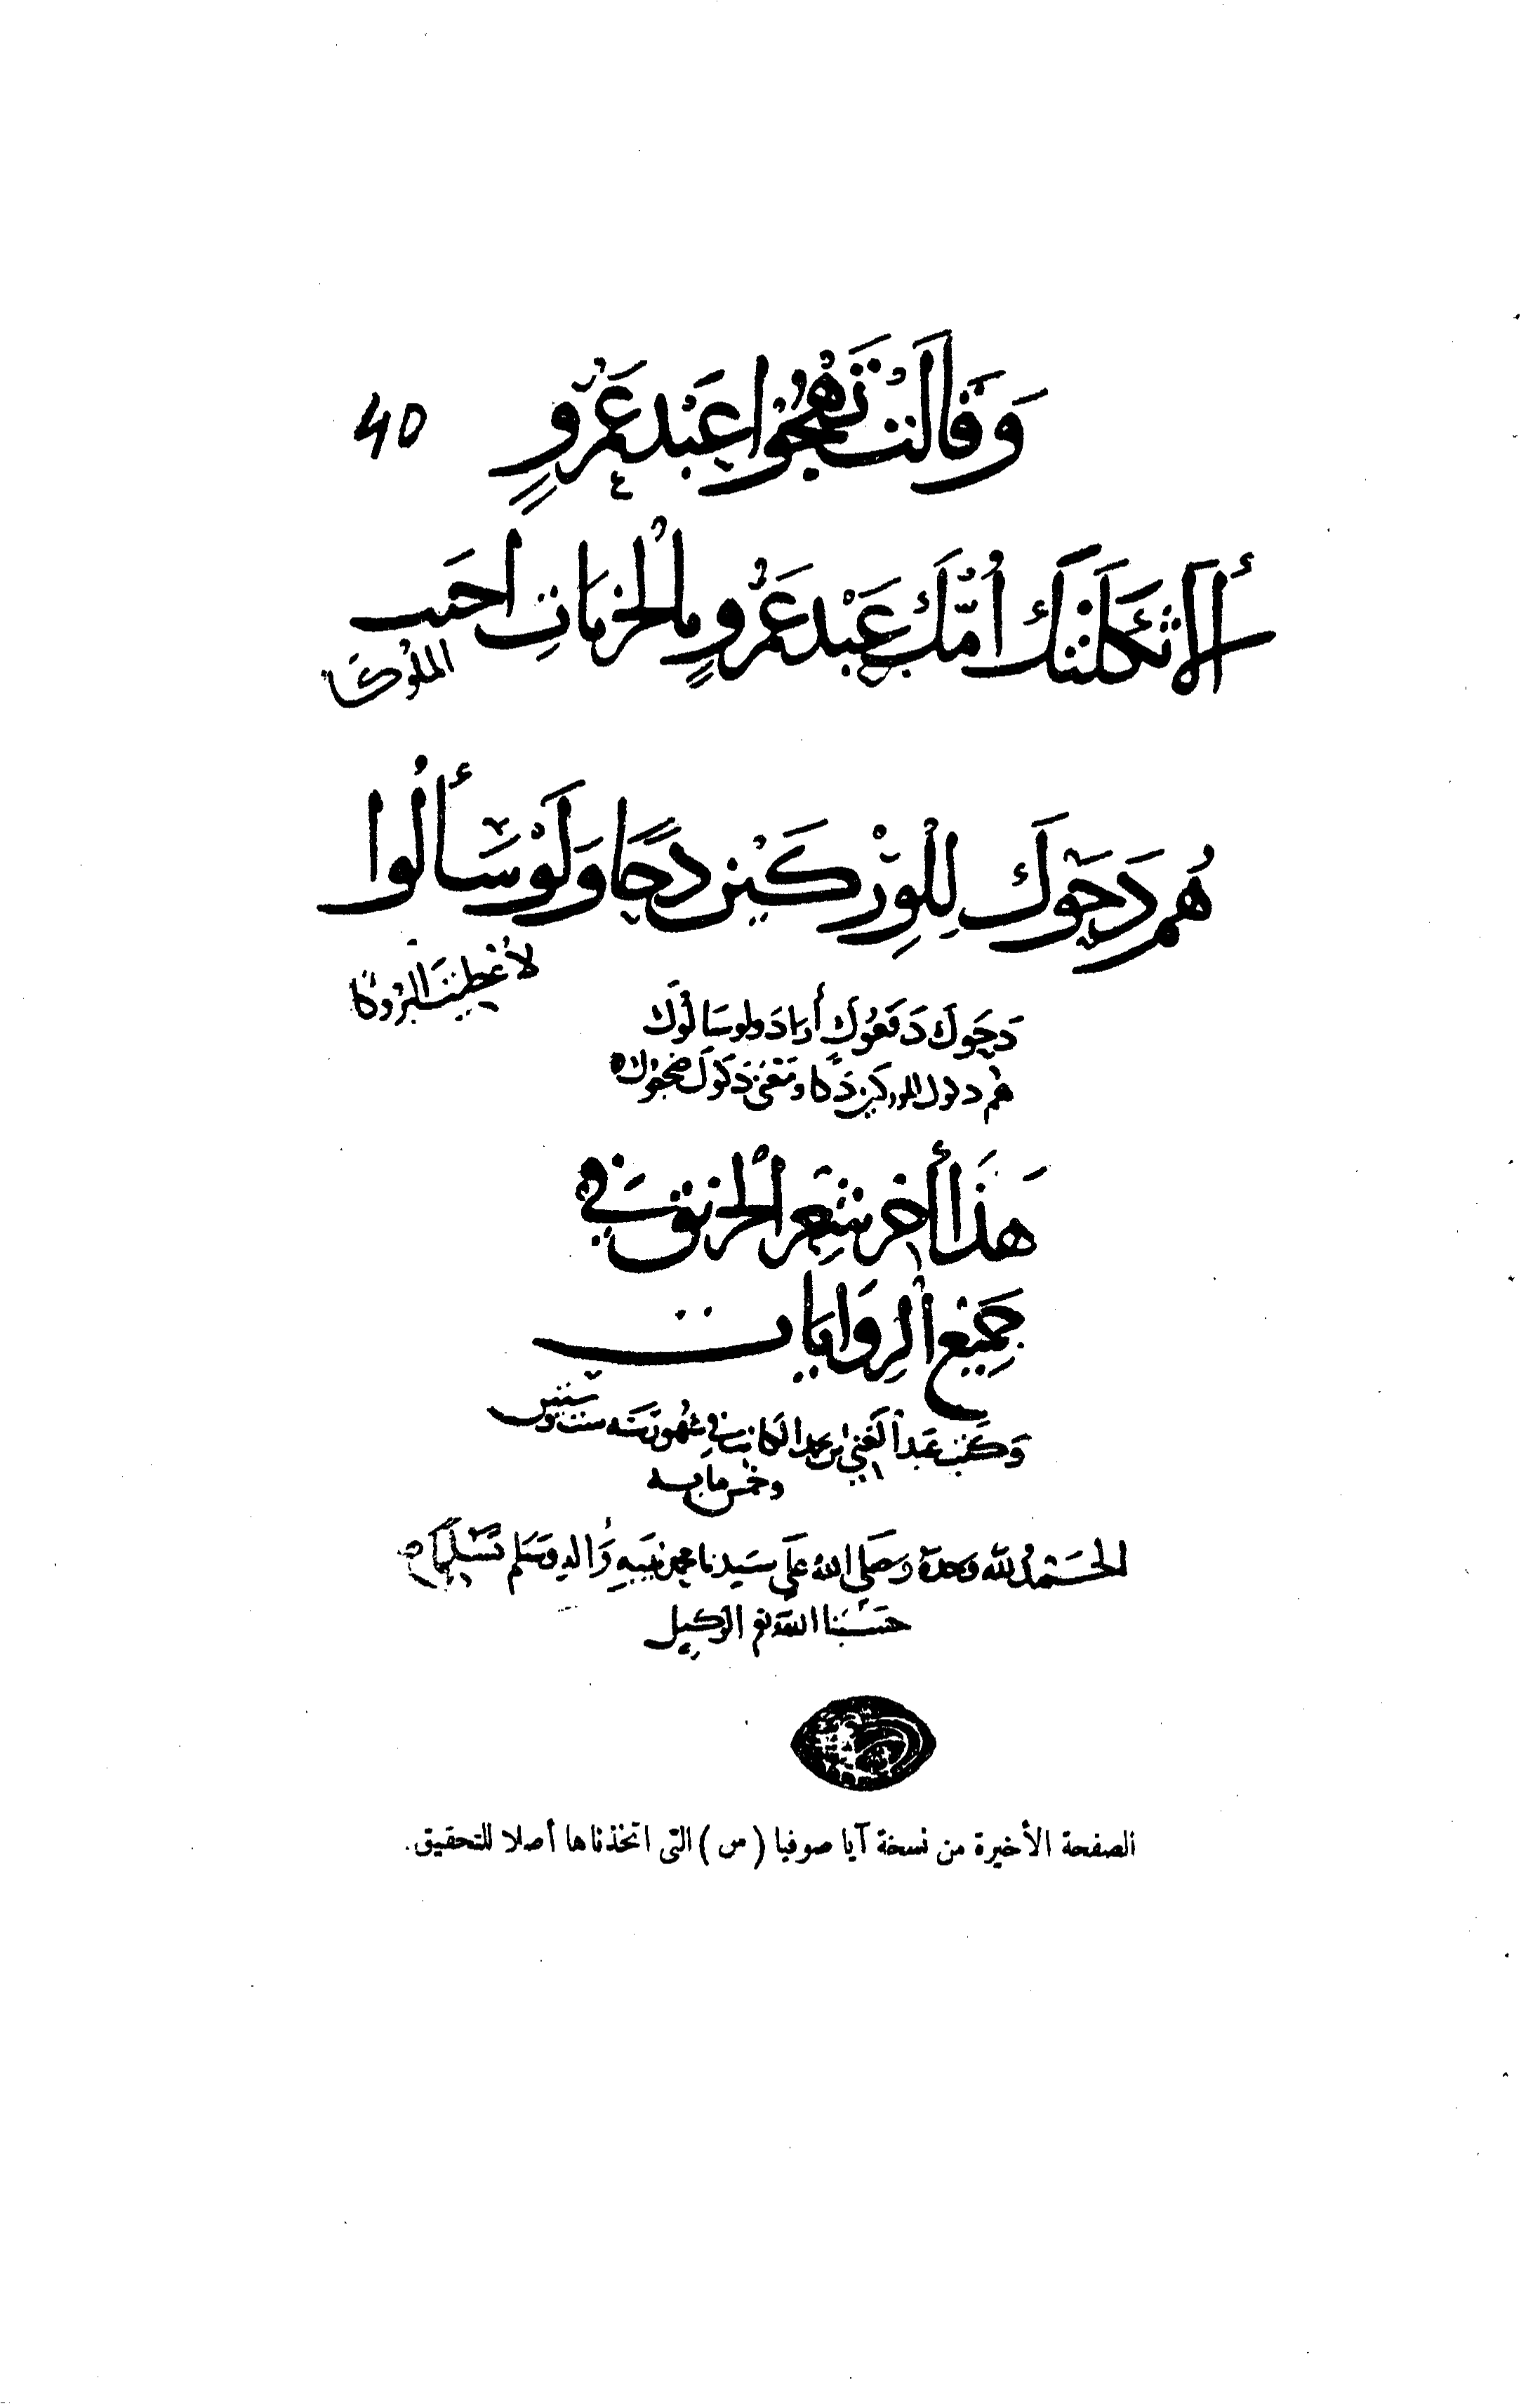 وَقَالَتْ تَهْجُوا عَبْدَ عَمْرٍو
40
أَلَا ثَكِلَتْكَ أُمُّكَ عَبْدَ عَمْرٍو أبالْخزَبَاتِ اخَيْتَ
الملُوكَا
هُم دَحَّوكَ لِلْوِرْكَيْنِ دَحًّا وَلَوْ سَأَلُوا
لَأعْطَيْتَ البُرُوكَا
دَحَّوكَ دَفَعُوكَ أراد ولو سَالُوكَ
هُم دلوك للوركين دَكّا ومَعْنَى دَكُّوكَ
هَذَا أاخِرُ شِعْرِ الْخِرْنِقِ فِي
جَمِيْعِ الْرِوَايَاتِ
وَكَتَبَ عَبْدُ الْغَنِيّ ابن الكاتب فِي شُهُورِ سَنَه سنتين
وخمس مايه
الحَمْدُ لله وَحدَهُ وَصَلَّى اللهُ عَلَى سَيدنا محمد نَبيِهِ وَاله وَسَلم تَسْلِيمًا
حَسْبُنَا اللهُ ونعم الوكيل
الصفحة الأخيرة من نسخة آيا صوفيا ( ص ) التى اتخذناها أصلا للتحقيق.